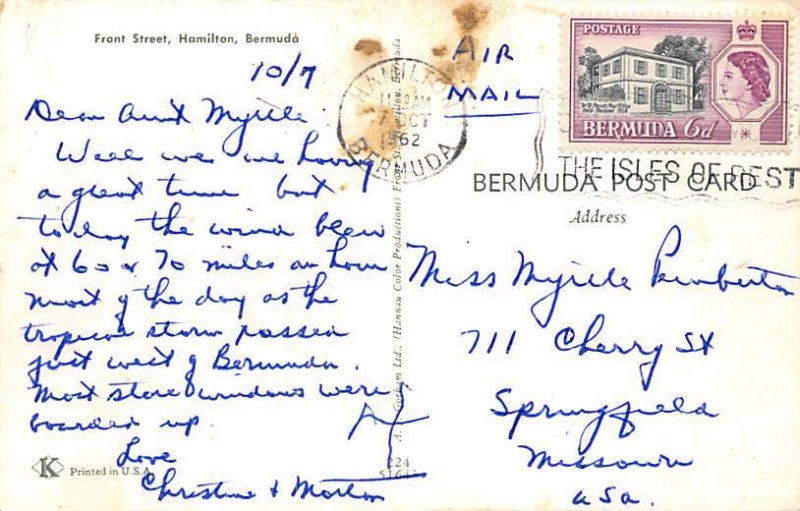 Front Street, Hamilton, Bermuda
10/7
Dear Aunt Myrtle:
Well we are having
a great time but
today the wind blew
at 60 & 70 miles an hour
most of the day as the
tropical storm passed
just west of Bermuda.
Most store windows were
boarded up.
Love
Christine & Morton
K Printed in U.S.A.
224
HAMILTON
11 AM
7 OCT
1962
BERMUDA
AIR
MAIL
POSTAGE
BERMUDA 6d
THE ISLES OF REST
BERMUDA POST CARD
Address
Miss Myrtle Pemberton
711 Cherry St
Springfield
Missouri
USA.
Gorham Ltd., (Hannau Color Productions) Front St., Hamilton, Bermuda